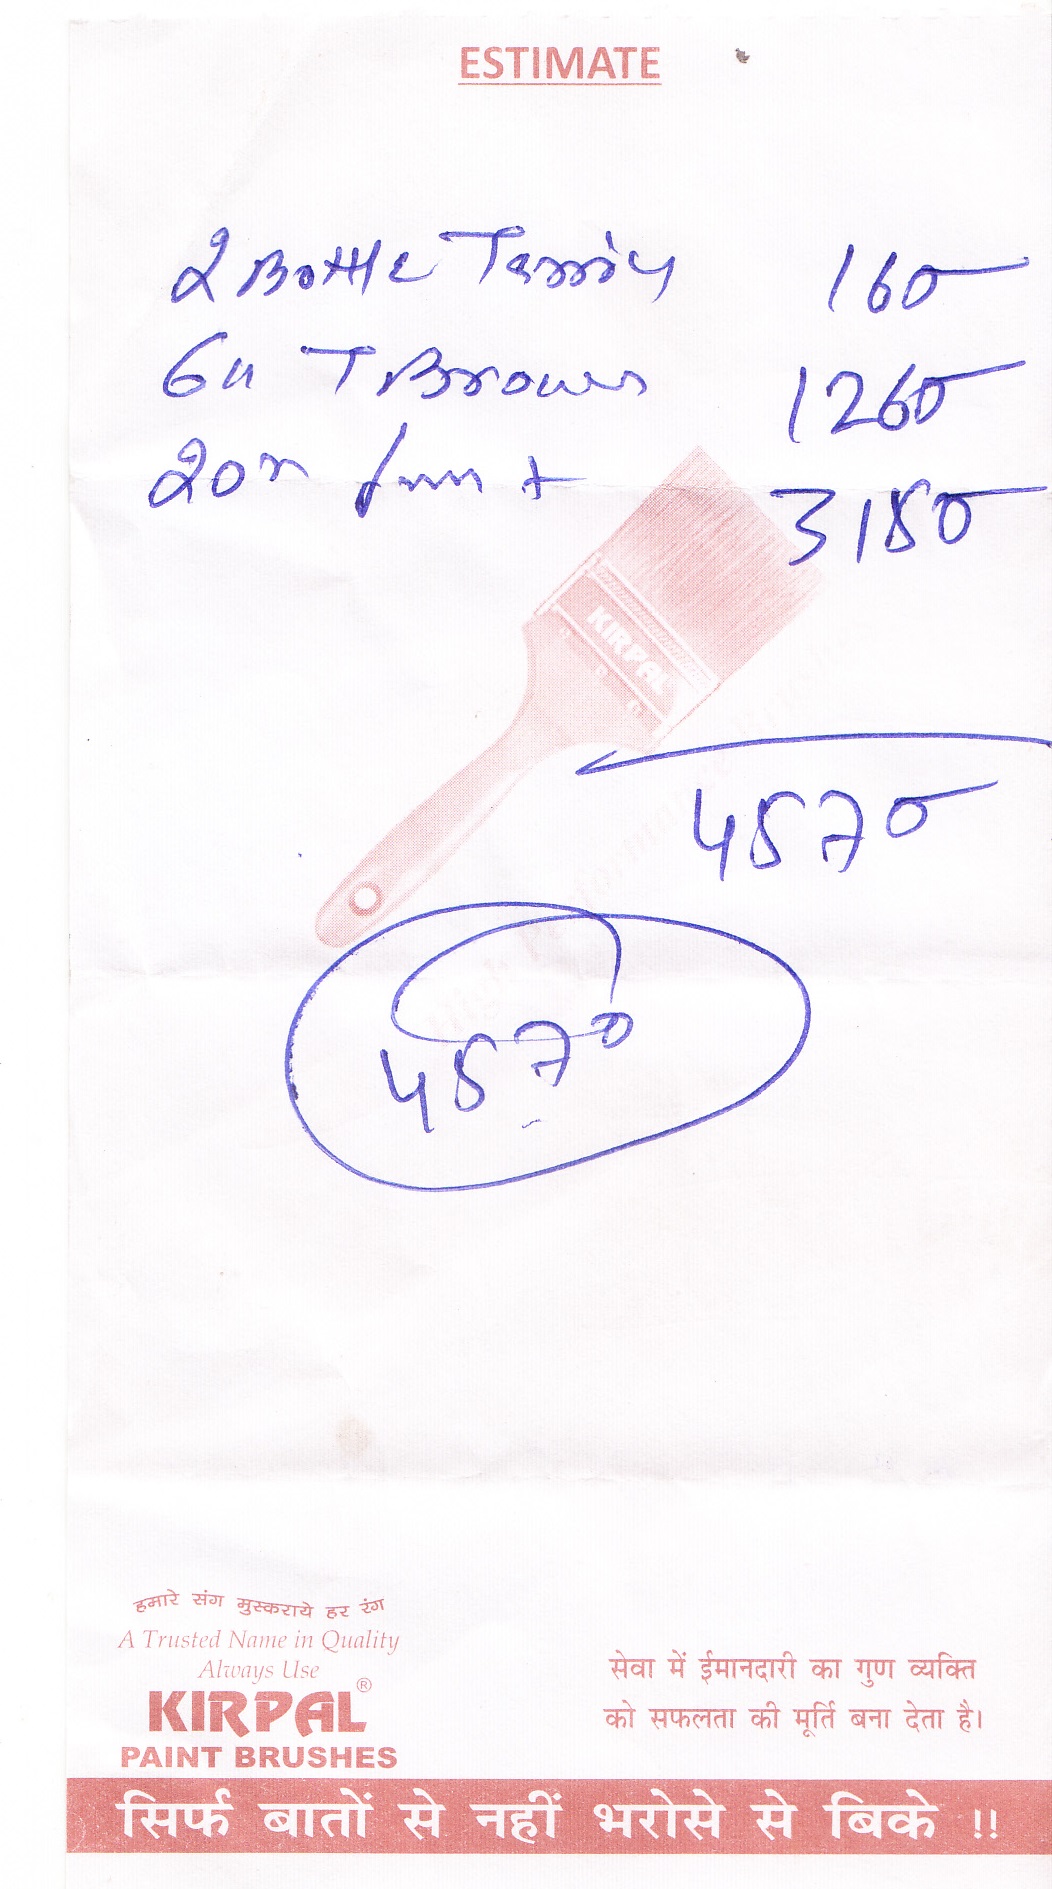 ESTIMATE
2 Bottle 160
6u T Brown 1260
20 3150
KIRPAL
4570
4570
हमारे संग मुस्कराये हर रंग
A Trusted Name in Quality
Always Use
KIRPAL®
PAINT BRUSHES
सेवा में ईमानदारी का गुण व्यक्ति
को सफलता की मूर्ति बना देता है।
सिर्फ बातों से नहीं भरोसे से बिके !!